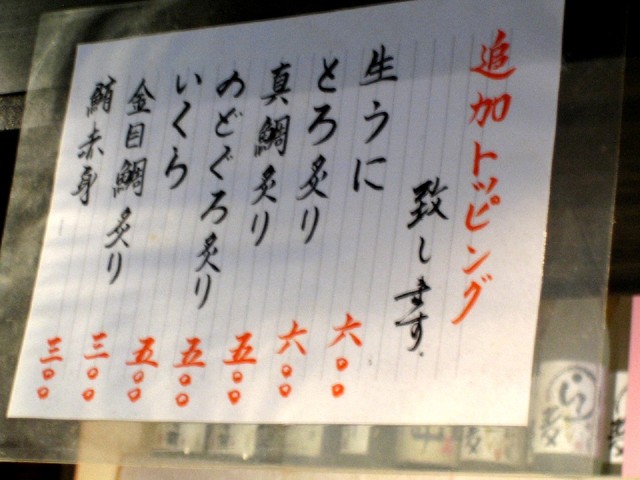 追加トッピング
致します.
生うに 六〇〇
とろ炙り 六〇〇
真鯛炙り 五〇〇
のどぐろ炙り 五〇〇
いくら 五〇〇
金目鯛炙り 三〇〇
鮪赤身 三〇〇